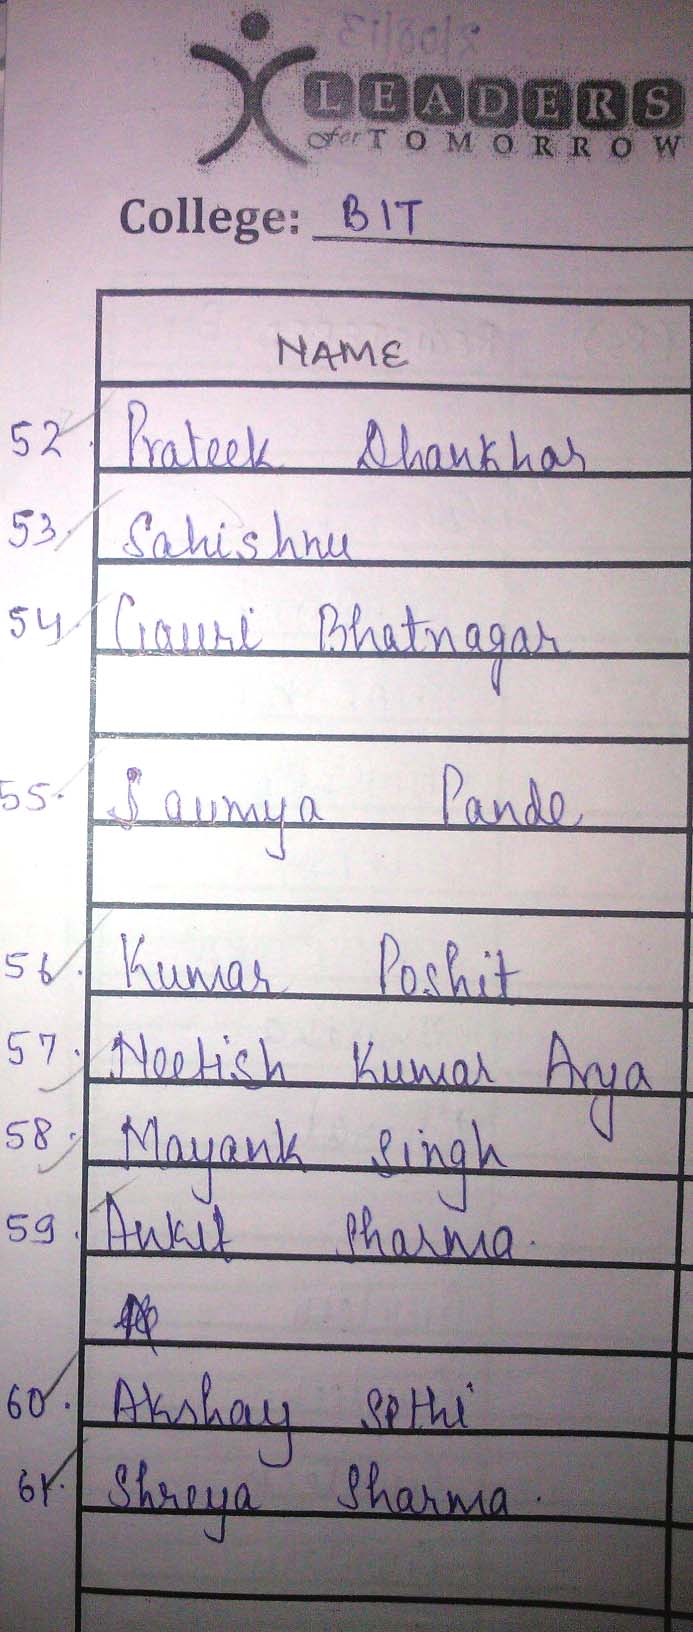 LEADERS
for TOMORROW
College: BIT
NAME
52. Prateek Dhankhar
53. Sahishnu
54. Gauri Bhatnagar
55. Saumya Pande
56. Kumar Poshit
57. Neetish Kumar Arya
58. Mayank Singh
59. Ankit Sharma.
60. Akshay Sethi
61. Shreya Sharma.